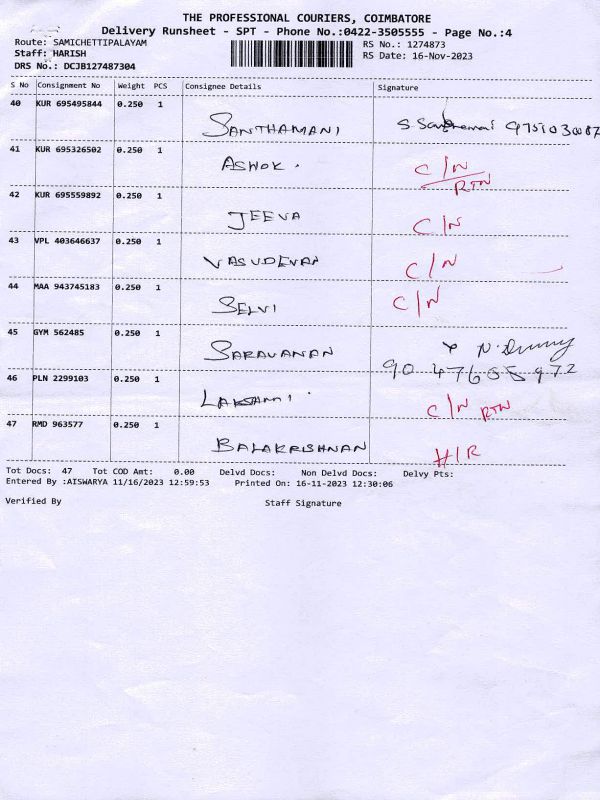 THE PROFESSIONAL COURIERS, COIMBATORE
Delivery Runsheet - SPT - Phone No.:0422-3505555 - Page No.:4
Route: SAMICHETTIPALAYAM
RS No.: 1274873
Staff: HARISH
RS Date: 16-Nov-2023
DRS No.: DCJB127487304
S No Consignment No Weight PCS Consignee Details Signature
40 KUR 695495844 0.250 1
SANTHAMANI
41 KUR 695326502 0.250 1
ASHOK. C/N
RTN
42 KUR 695559892 0.250 1
JEEVA C/N
43 VPL 403646637 0.250 1
VASUDEVAN C/N
44 MAA 943745183 0.250 1
SELVI C/N
45 GYM 562485 0.250 1
SARAVANAN
46 PLN 2299103 0.250 1
LAKSHMI. C/N RTN
47 RMD 963577 0.250 1
BALAKRISHNAN H/R
Tot Docs: 47 Tot COD Amt: 0.00 Delvd Docs: Non Delvd Docs: Delvy Pts:
Entered By :AISWARYA 11/16/2023 12:59:53 Printed On: 16-11-2023 12:30:06
Verified By Staff Signature